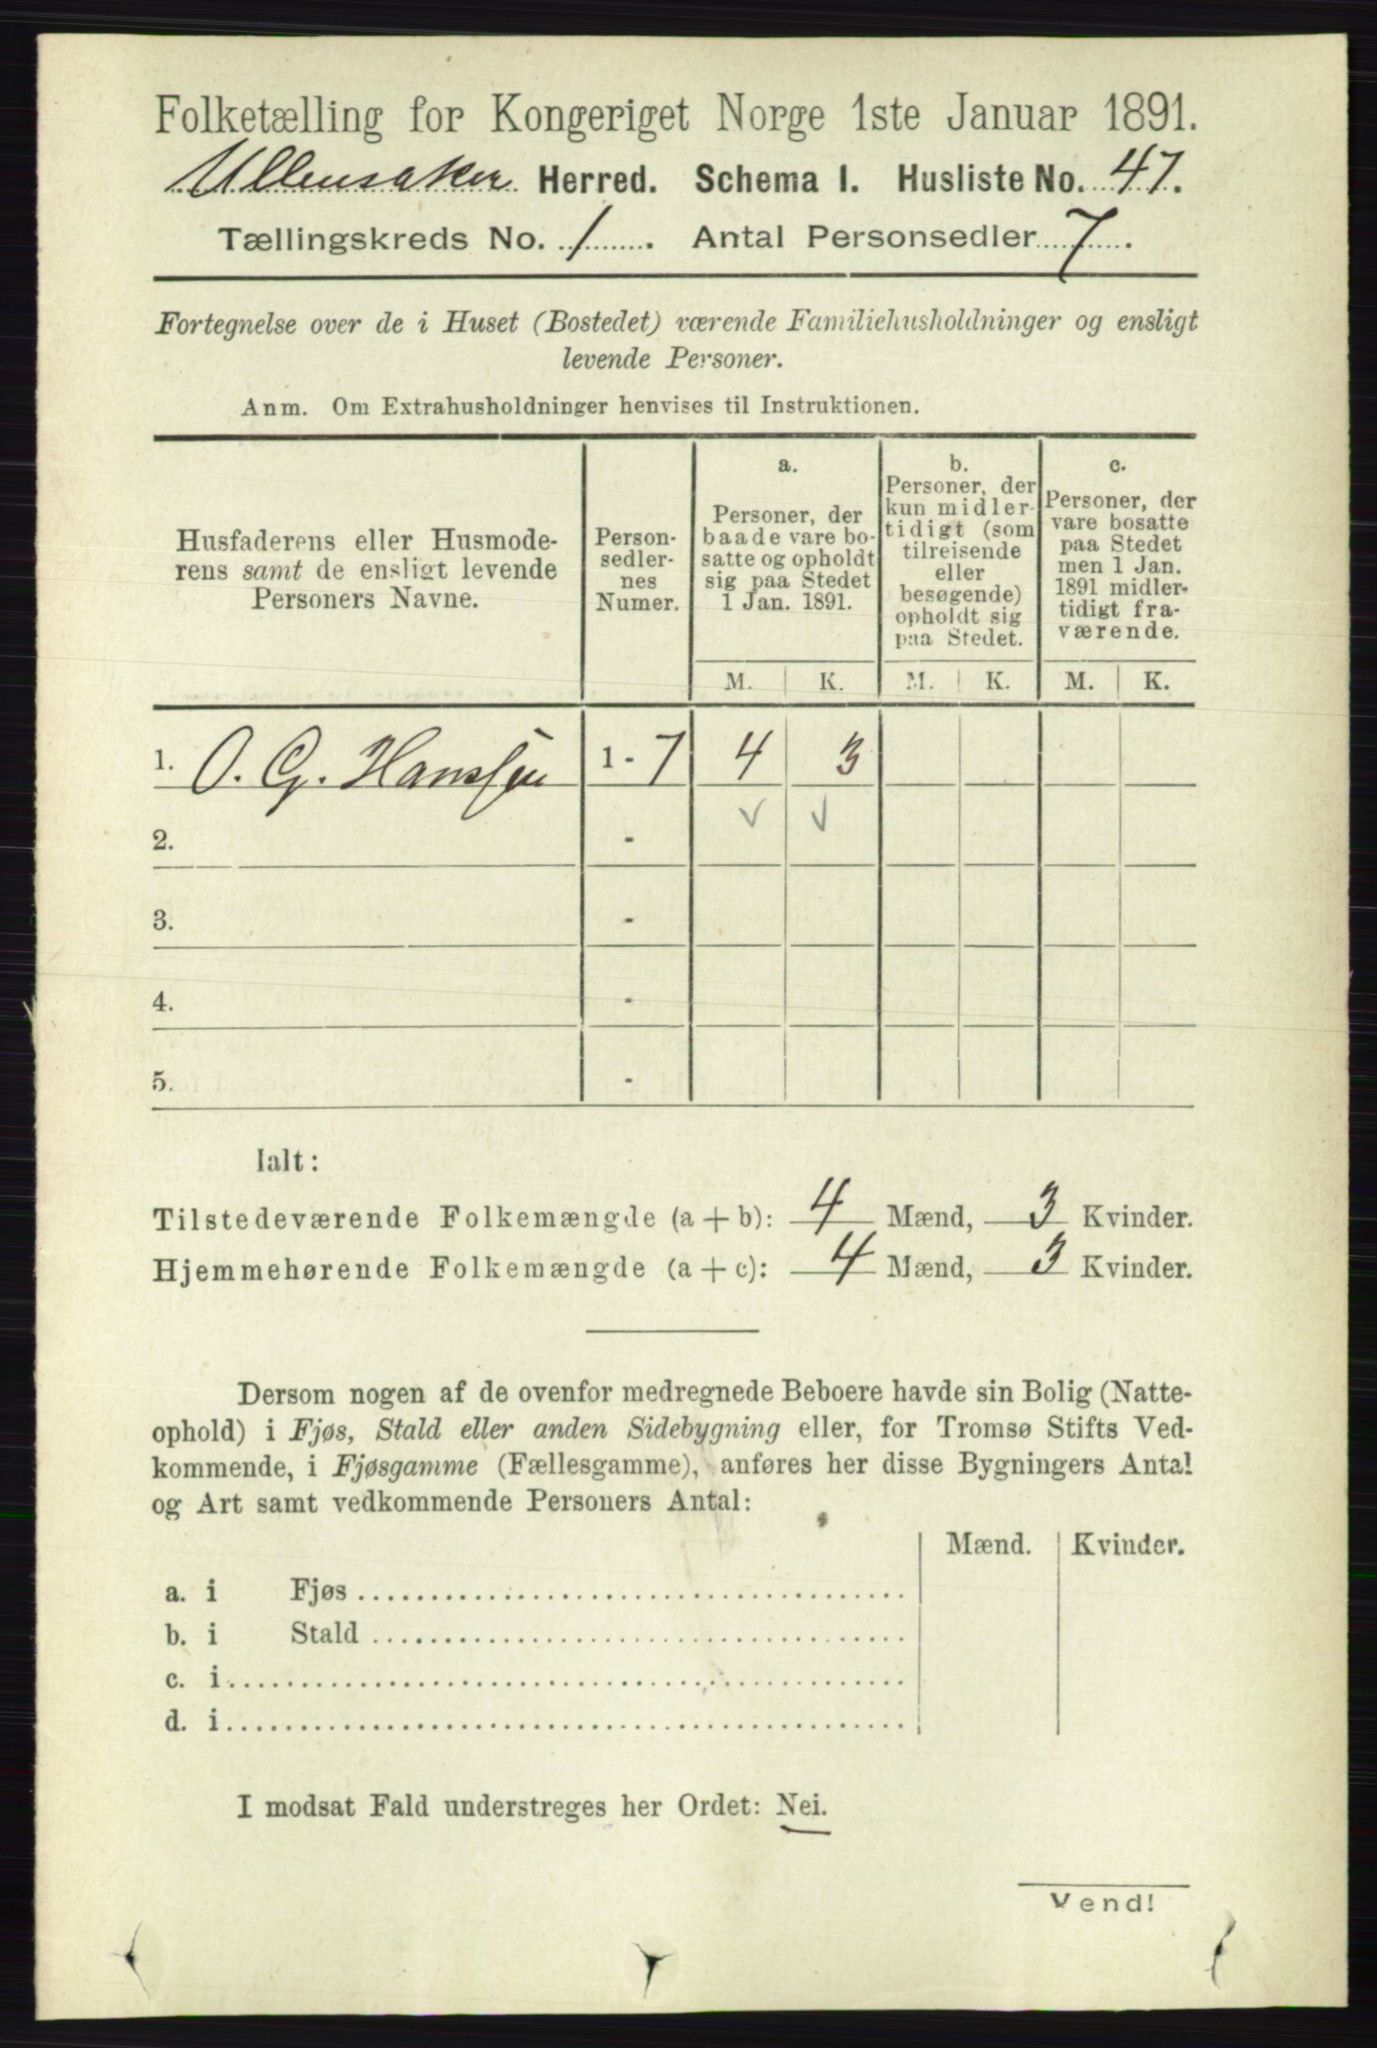 Folketælling for Kongeriget Norge 1ste Januar 1891.
Ullensaker Herred. Schema I. Husliste No. 47.
Tællingskreds No. 1. Antal Personsedler 7.
Fortegnelse over de i Huset (Bostedet) værende Familiehusholdninger og ensligt
levende Personer.
Anm. Om Extrahusholdninger henvises til Instruktionen.
Husfaderens eller Husmode-
rens samt de ensligt levende
Personers Navne.
Person-
sedler-
nes
Numer.
a.
Personer, der
baade vare bo-
satte og opholdt
sig paa Stedet
1 Jan. 1891.
b.
Personer, der
kun midler-
tidigt (som
tilreisende
eller
besøgende)
opholdt sig
paa Stedet.
c.
Personer, der
vare bosatte
paa Stedet
men 1 Jan.
1891 midler-
tidigt fra-
værende.
M. K. M. K. M. K.
1. O. G. Hanssen 1 - 7 4 3
2. -
3. -
4. -
5. -
Ialt:
Tilstedeværende Folkemængde (a + b): 4 Mænd, 3 Kvinder.
Hjemmehørende Folkemængde (a + c): 4 Mænd, 3 Kvinder.
Dersom nogen af de ovenfor medregnede Beboere havde sin Bolig (Natte-
ophold) i Fjøs, Stald eller anden Sidebygning eller, for Tromsø Stifts Ved-
kommende, i Fjøsgamme (Fællesgamme), anføres her disse Bygningers Antal
og Art samt vedkommende Personers Antal:
Mænd. Kvinder.
a. i Fjøs
b. i Stald
c. i
d. i
I modsat Fald understreges her Ordet: Nei.
Vend!